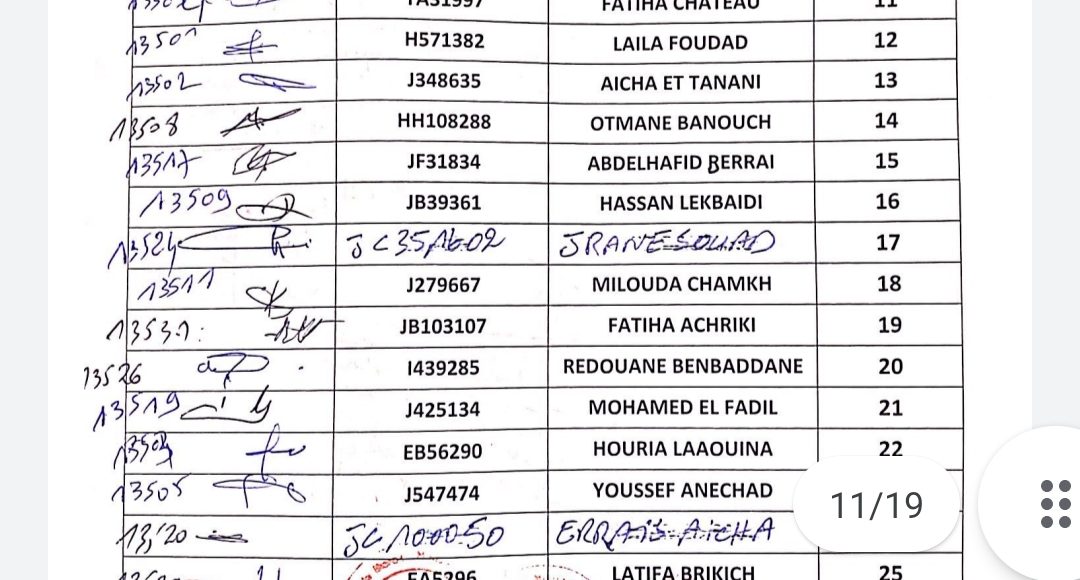 FATIHA CHATEAU 11
13501 H571382 LAILA FOUDAD 12
13502 J348635 AICHA ET TANANI 13
13508 HH108288 OTMANE BANOUCH 14
13517 JF31834 ABDELHAFID BERRAI 15
13509 JB39361 HASSAN LEKBAIDI 16
13524 JRANE SOUAD 17
13511 J279667 MILOUDA CHAMKH 18
JB103107 FATIHA ACHRIKI 19
13526 I439285 REDOUANE BENBADDANE 20
13519 J425134 MOHAMED EL FADIL 21
EB56290 HOURIA LAAOUINA 22
13505 J547474 YOUSSEF ANECHAD
11/19
JC100050 ERRAIS AICHA
LATIFA BRIKICH 25